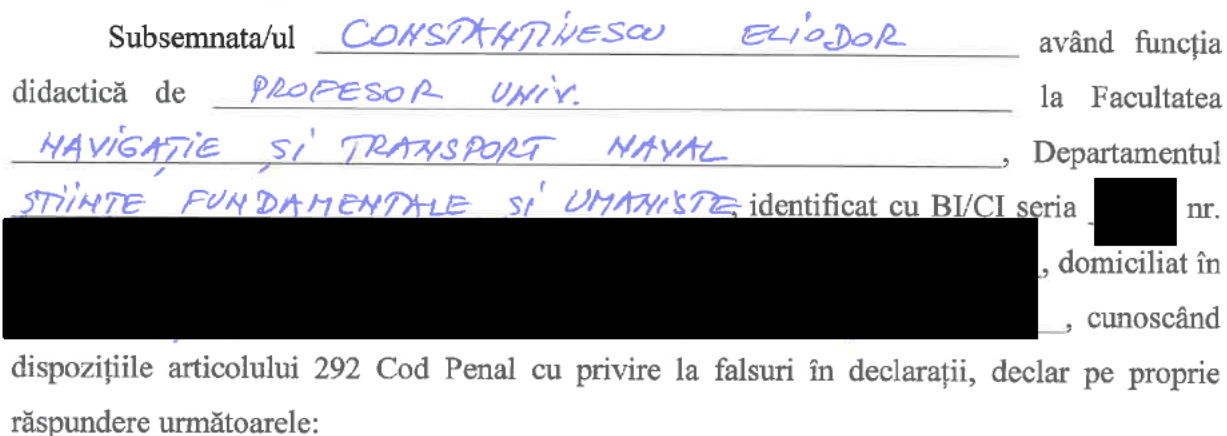 Subsemnata/ul CONSTANTINESCU ELIODOR având funcția
didactică de PROFESOR UNIV. la Facultatea
NAVIGAȚIE ȘI TRANSPORT NAVAL, Departamentul
STIINTE FUNDAMENTALE SI UMANISTE, identificat cu BI/CI seria nr.
, domiciliat în
, cunoscând
dispozițiile articolului 292 Cod Penal cu privire la falsuri în declarații, declar pe proprie
răspundere următoarele: